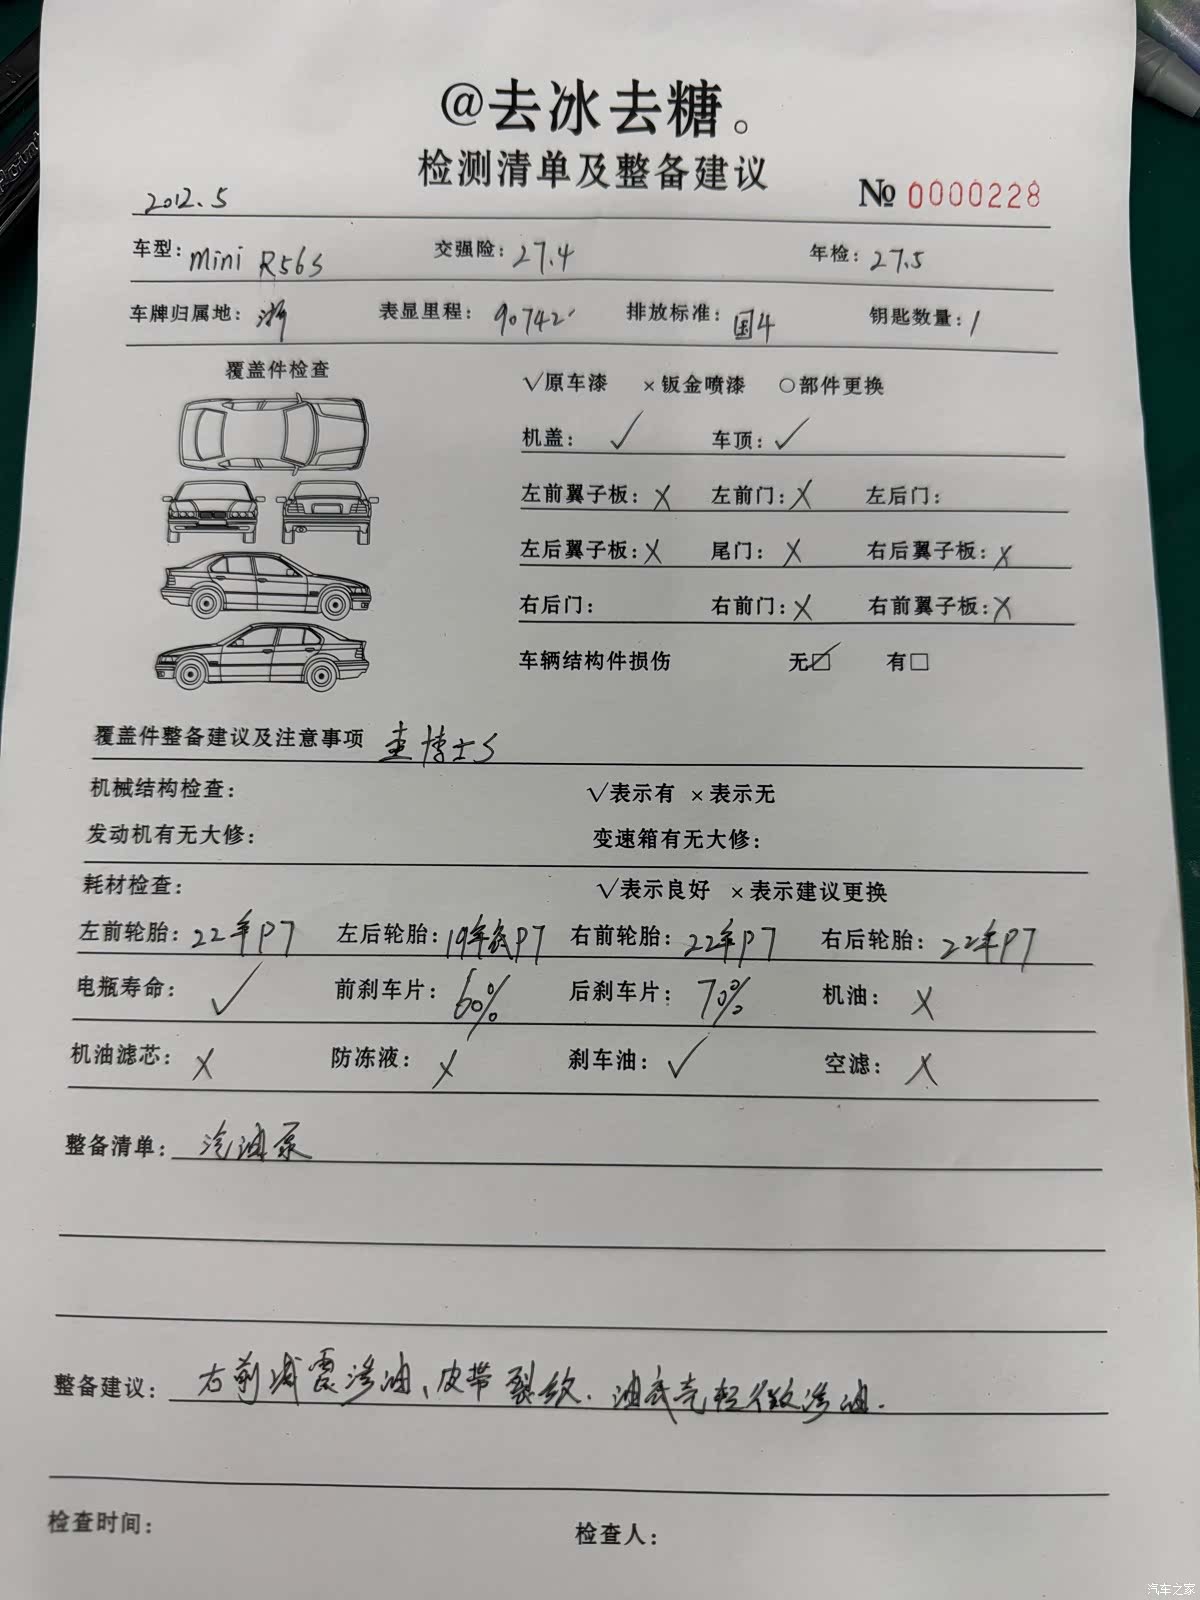 @去冰去糖。
检测清单及整备建议
2012.5 № 0000228
车型: mini R56S 交强险: 27.4 年检: 27.5
车牌归属地: 浙 表显里程: 90742 排放标准: 国4 钥匙数量: 1
覆盖件检查 √原车漆 ×钣金喷漆 ○部件更换
机盖: √ 车顶: √
左前翼子板: × 左前门: × 左后门:
左后翼子板: × 尾门: × 右后翼子板: ×
右后门: 右前门: × 右前翼子板: ×
车辆结构件损伤 无☑ 有□
覆盖件整备建议及注意事项 博士S
机械结构检查: √表示有 ×表示无
发动机有无大修: 变速箱有无大修:
耗材检查: √表示良好 ×表示建议更换
左前轮胎: 22年P7 左后轮胎: 19年P7 右前轮胎: 22年P7 右后轮胎: 22年P7
电瓶寿命: √ 前刹车片: 60% 后刹车片: 70% 机油: ×
机油滤芯: × 防冻液: × 刹车油: √ 空滤: ×
整备清单: 汽油泵
整备建议: 右前减震渗油、皮带裂纹. 油底壳轻微渗油.
检查时间: 检查人:
Point
汽车之家